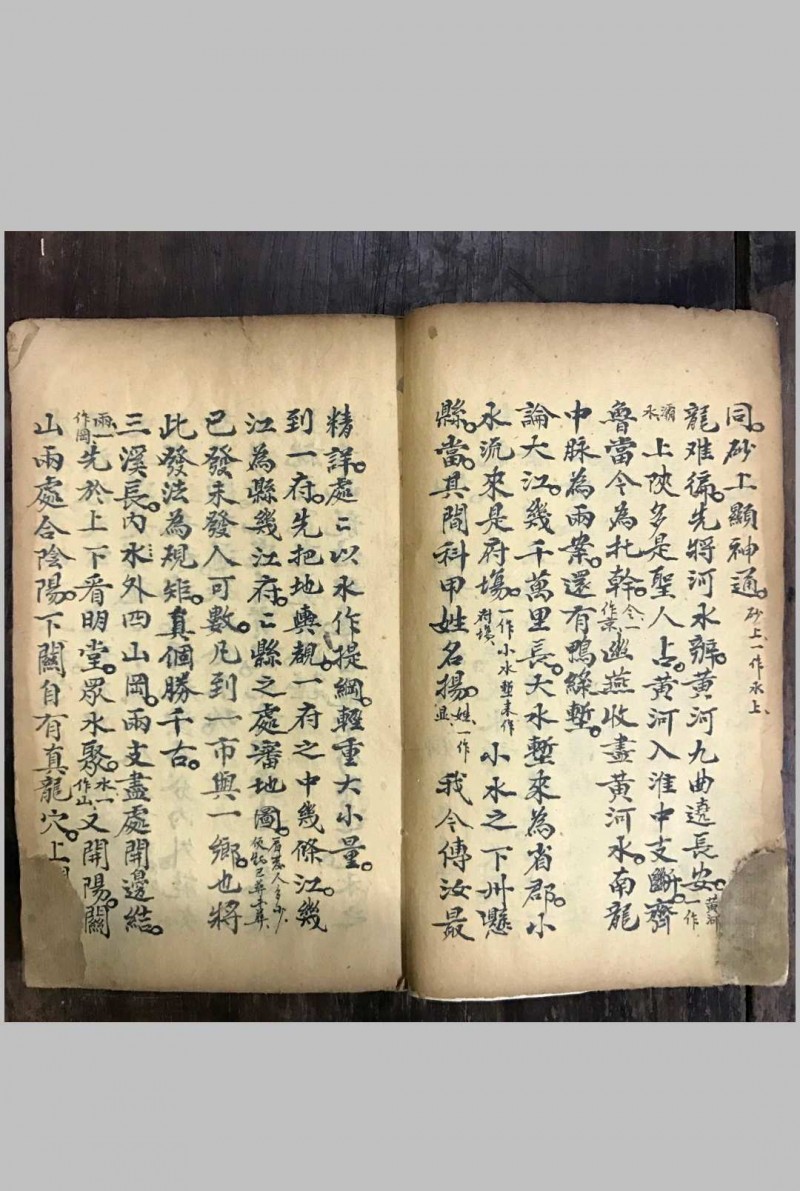 同。砂上顯神通。砂上、一作水上、
龍难徧。先將河水辨。黄河九曲遶長安。黃河一作
灞水、上陝多是聖人占。黄河入淮中支斷。齊
魯當令為托幹。令、一作來、幽燕收盡黄河水。南龍
中脉為兩業。還有鴨綠塹。
論大江。幾千萬里長。大水塹來為省郡。小
水流來是府塲。一作小水塹来作府塲、小水之下州懸
縣。當其間科甲姓名揚。姓、一作显、我今傳汝最
精詳。處〻以水作提綱。輕重大小量。
到一府。先把地輿覩。一府之中幾條江。幾
江為縣幾江府。〻縣之處審地圖。
已發未發人可數。凡到一市與一鄉。也將
此發法為規矩。真個勝千古。
三溪長。内水外四山岡。兩支盡處開邊結。
兩、一作岡、先於上下看明堂。眾水聚。水、一作山、又開陽。關
山兩處合陰陽。下關自有真龍穴。上